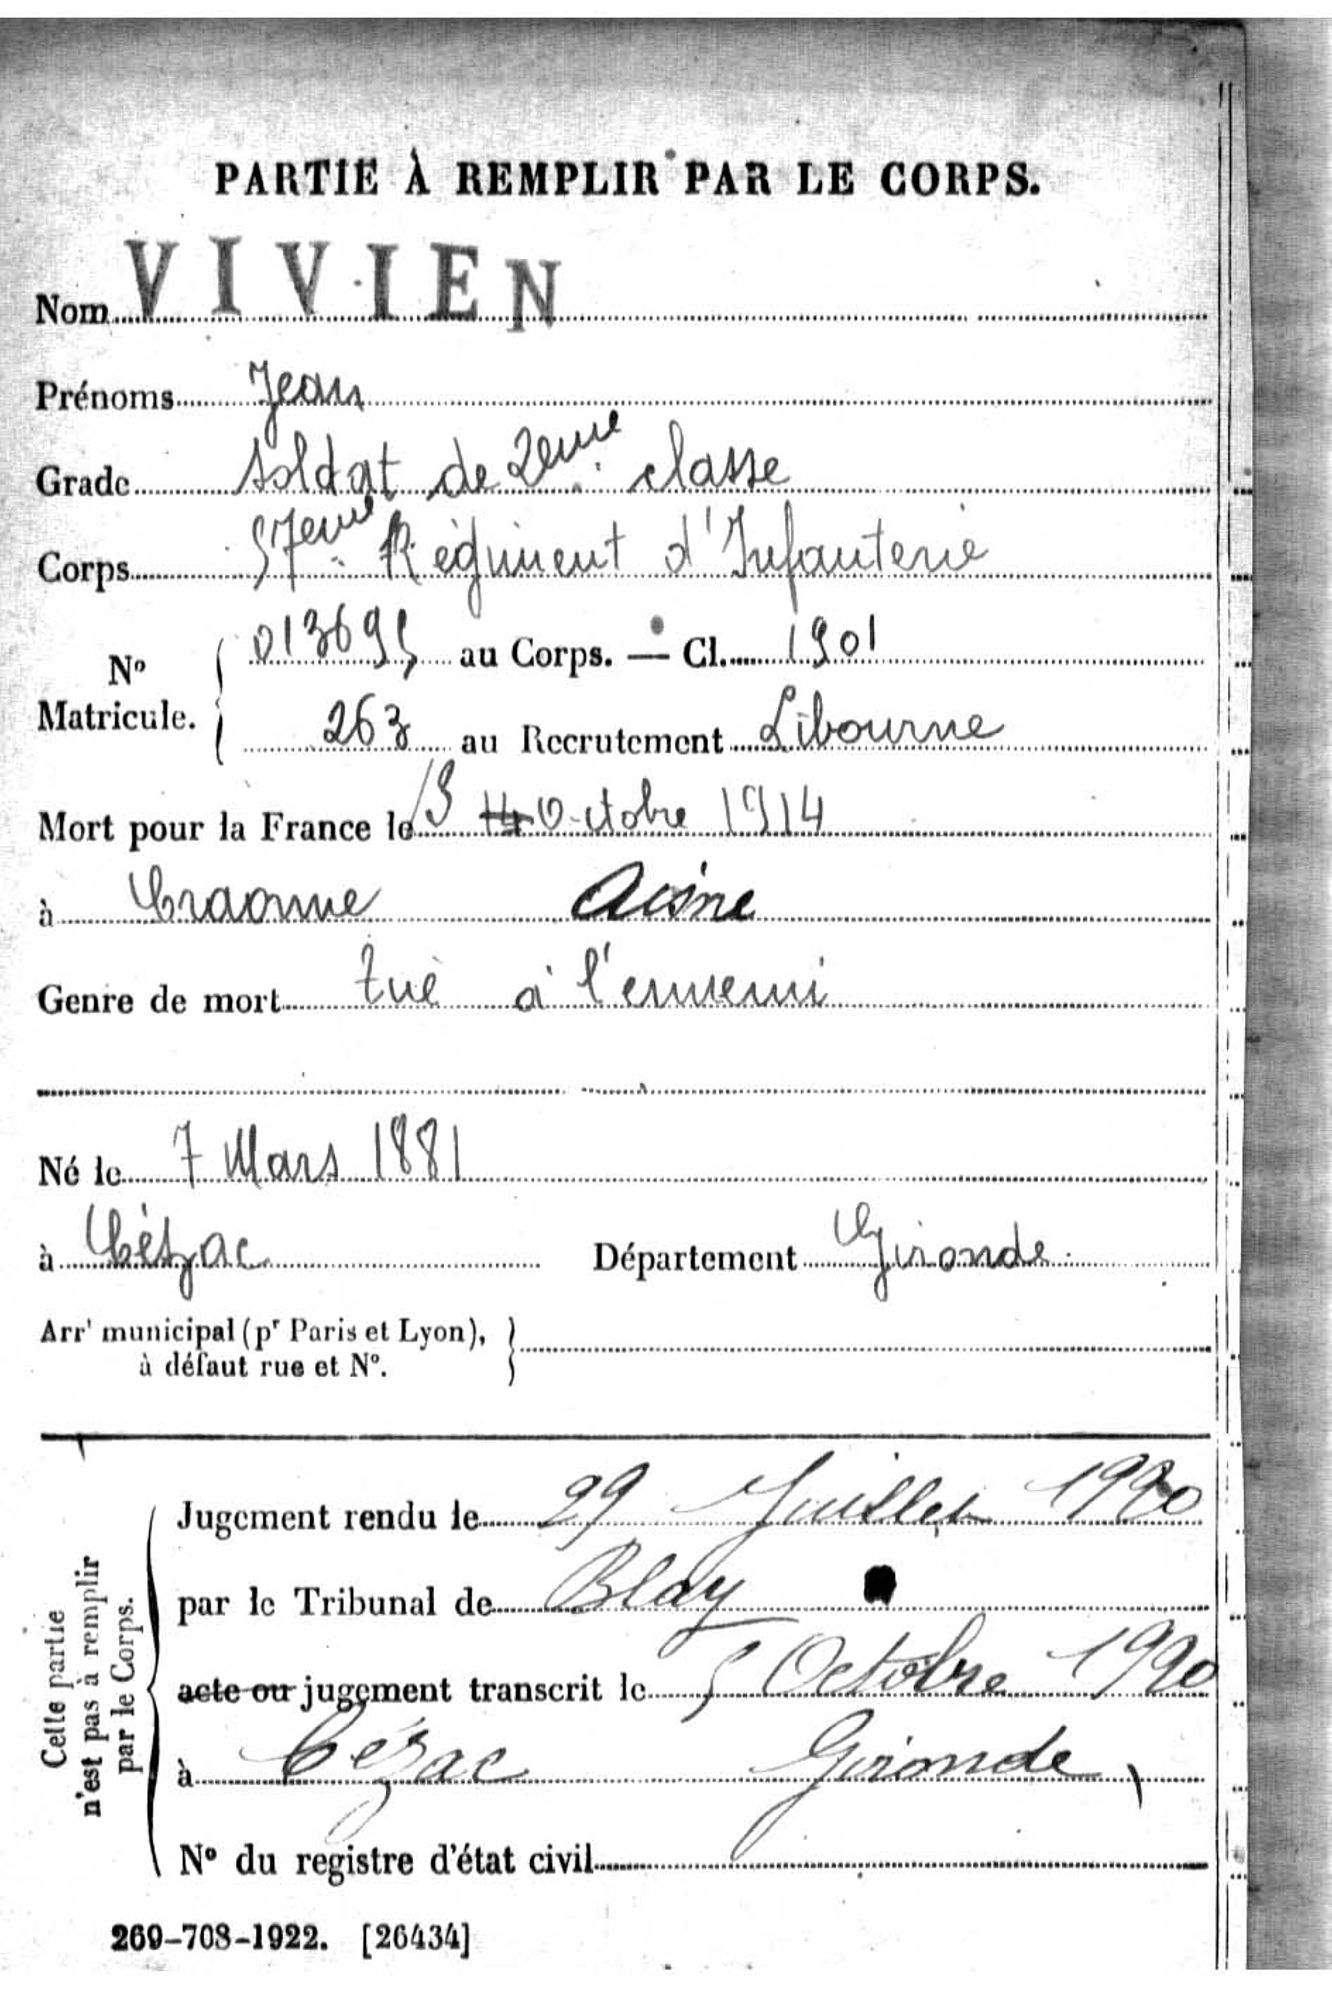 PARTIE À REMPLIR PAR LE CORPS.
Nom VIVIEN
Prénoms Jean
Grade soldat de 2eme classe
Corps 57eme Régiment d'Infanterie
No Matricule. 013695 au Corps. — Cl. 1901
263 au Recrutement Libourne
Mort pour la France le 13 14 Octobre 1914
à Craonne Aisne
Genre de mort tué à l'ennemi
Né le 7 Mars 1881
à Cézac Département Gironde
Arrt municipal (pr Paris et Lyon),
à défaut rue et No.
Cette partie
n'est pas à remplir
par le Corps.
Jugement rendu le 29 Juillet 1920
par le Tribunal de Blay
acte ou jugement transcrit le 5 Octobre 1920
à Cézac Gironde
No du registre d'état civil
269-708-1922. [26434]